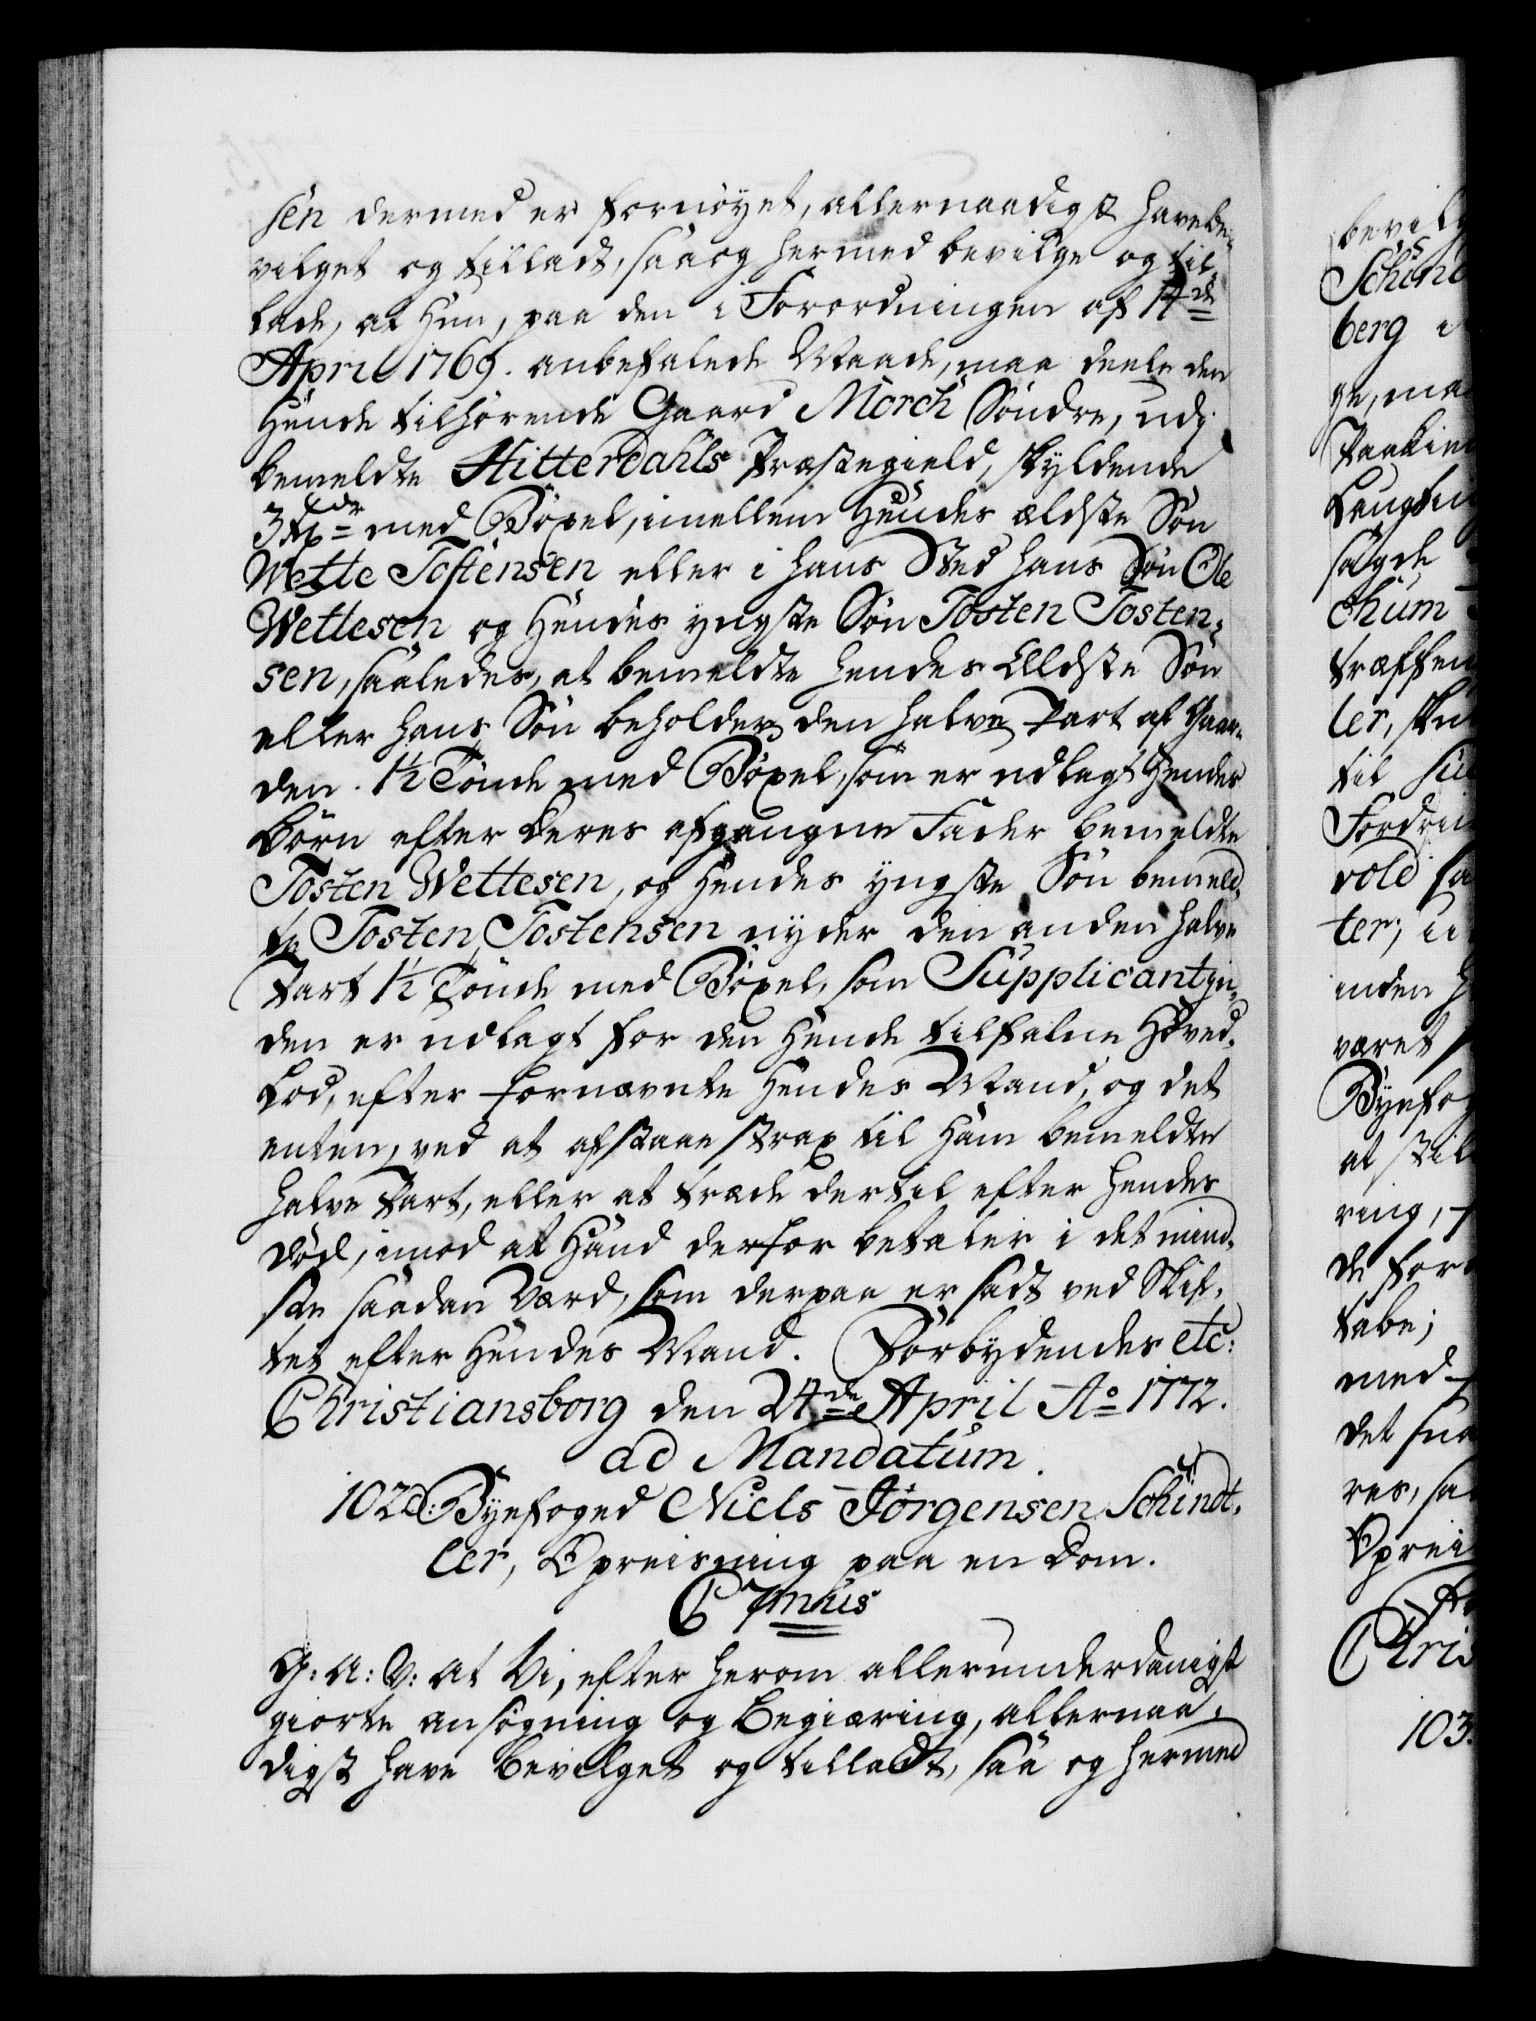 sen dermed er fornøyet, allernaadigst have be-
vilget og tilladt, saa og hermed bevilge og til-
lade, at Hun, paa den i Forordningen af 14de
April 1769. anbefalede Maade, maa deele den
Hende tilhørende Gaard Mørch Søndre, udj
bemeldte Hitterdahls Præstegield, skyldende
3 Tdr med Bøxel, imellem Hendes ældste Søn
Wette Tostensen eller i hans Sted hans Søn Ole
Wettesen og Hendes yngste Søn Tosten Tosten-
sen, saaledes, at bemeldte hendes Ældste Søn
eller hans Søn beholder den halve Part af Gaar-
den 1½ Tønde med Bøxel, som er udlagt Hendes
Børn efter deres afgangne Fader bemeldte
Tosten Wettesen, og Hendes yngste Søn bemeld-
te Tosten Tostensen nyder den anden halve
Part 1½ Tønde med Bøxel, som Supplicantjn-
den er udlagt for den Hende tilfalne Hoved-
Lod, efter fornævnte Hendes Mand, og det
enten, ved at afstaae strax til Ham bemeldte
halve Part, eller at træde dertil efter Hendes
Død, imod at Hand derfor betaler i det mind-
ste saadan Værd, som derpaa er sadt ved Skif-
tet efter Hendes Mand. Forbydendes etc:
Christiansborg den 24de April Ao 1772.
ad Mandatum.
102. Byefoged Niels Jørgensen Schindt-
ler, Opreisning paa en Dom.
C 7mus
G: A: V: at Vi, efter herom allerunderdanigst
giorte ansøgning og Begiæring, allernaa-
digst have bevilget og tilladt, saa og hermed
bevilg
Schind
berg i
ge, ma
Paakien
Laugtin
søgde
chum
træffen
ler,
til
Fordrin
vold
ter;
inden
været
Byefog
at
ring,
de for
tabe;
med
det
res, saa
Oprei
Chris
103.